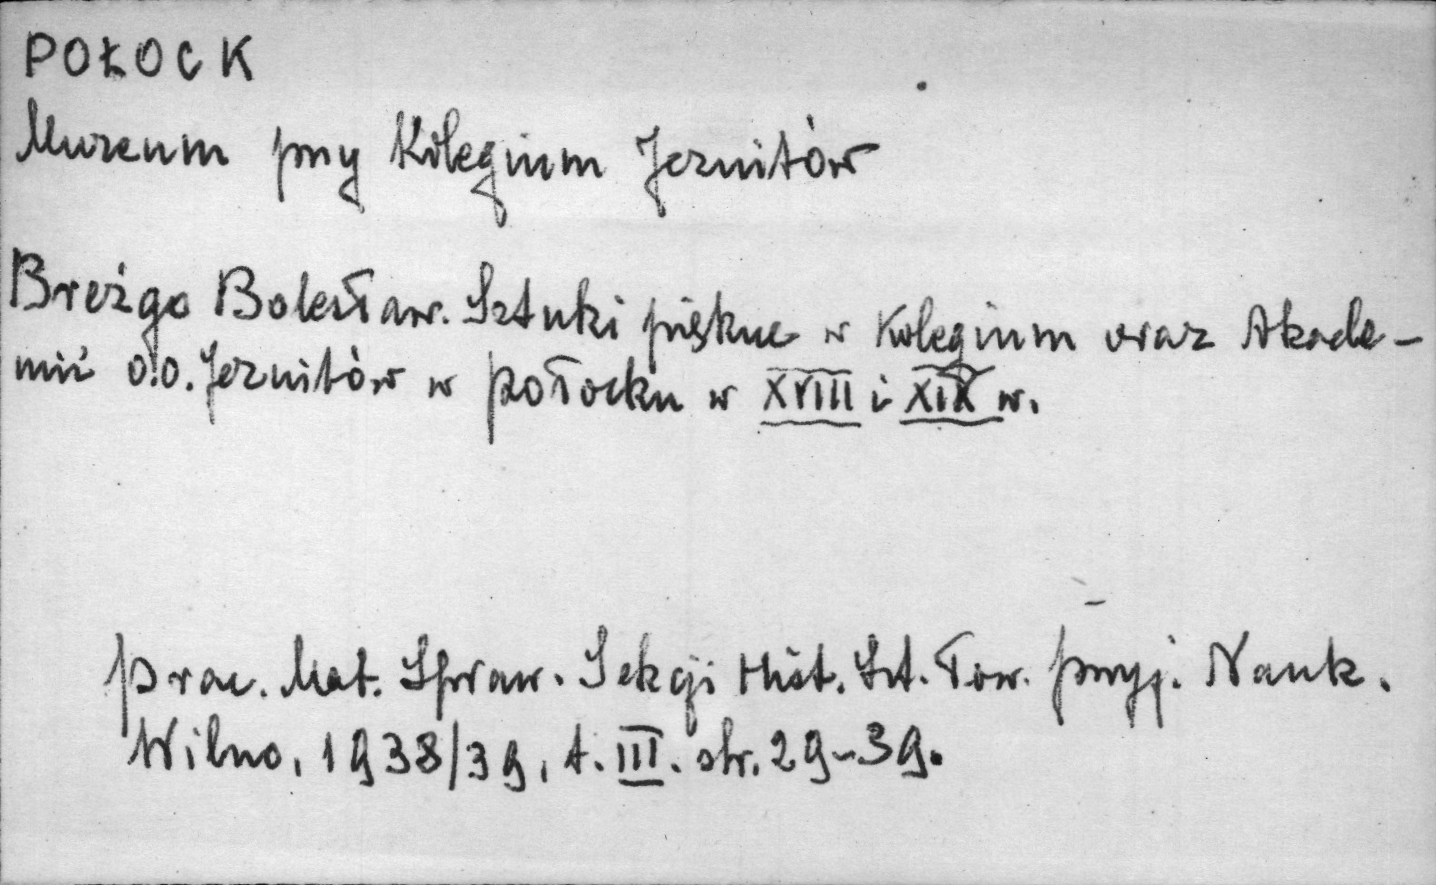 POŁOCK
Muzeum przy Kolegium Jezuitów
Breżgo Bolesław. Sztuki piękne w Kolegium oraz Akade-
mii o.o. Jezuitów w Połocku w XVIII i XIX w.
Prac. Mat. Spraw. Sekcji Hist. Szt. Tow. Przyj. Nauk.
Wilno, 1938/39, t. III. str. 29-39.